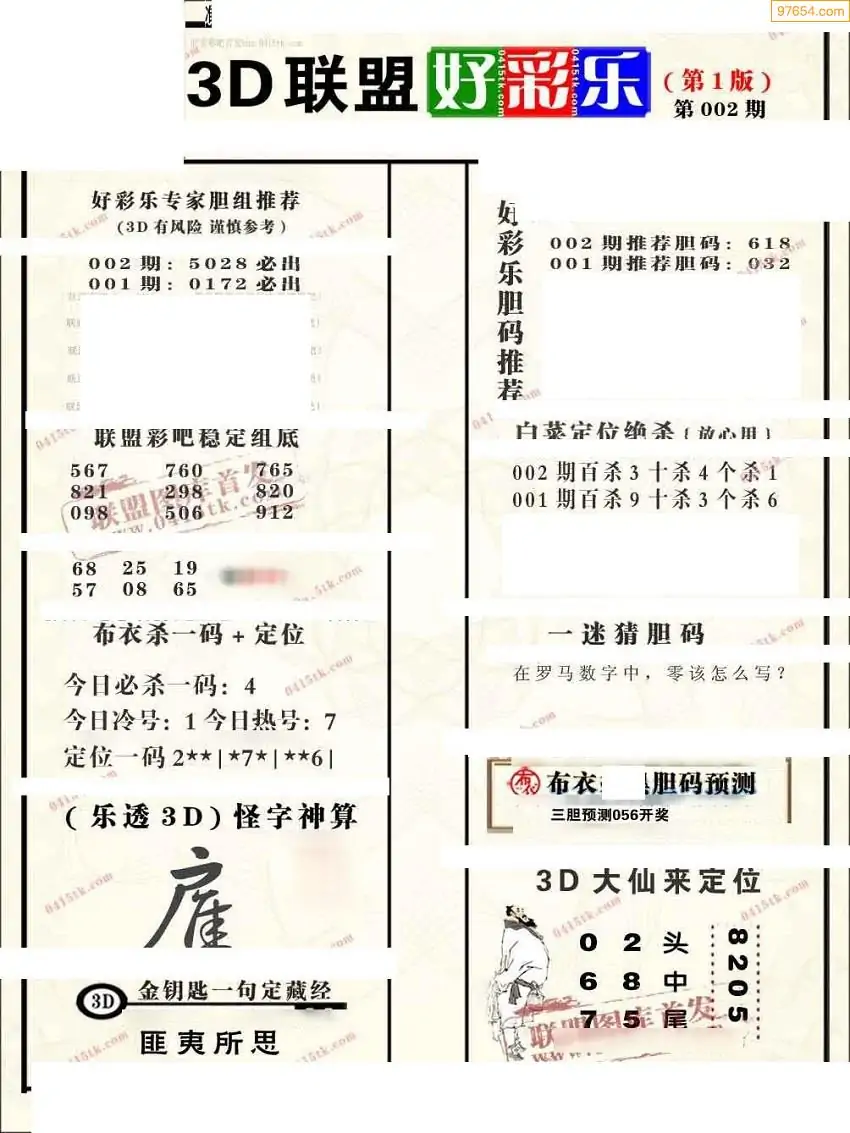 97654.com
3D联盟好彩乐
(第1版)
第002期
好彩乐专家胆组推荐
(3D有风险 谨慎参考)
002期：5028必出
001期：0172必出
联盟彩吧稳定组底
567 760 765
821 298 820
098 506 912
68 25 19
57 08 65
布衣杀一码+定位
今日必杀一码：4
今日冷号：1 今日热号：7
定位一码2**|*7*|**6|
(乐透3D)怪字神算
金钥匙一句定藏经
3D
匪夷所思
好彩乐胆码推荐
002期推荐胆码：618
001期推荐胆码：032
白菜定位绝杀{放心用}
002期百杀3十杀4个杀1
001期百杀9十杀3个杀6
一迷猜胆码
在罗马数字中，零该怎么写？
布衣
胆码预测
三胆预测056开奖
3D大仙来定位
0 2 头
6 8 中
7 5 尾
8205
联盟图库首发
0415tk.com